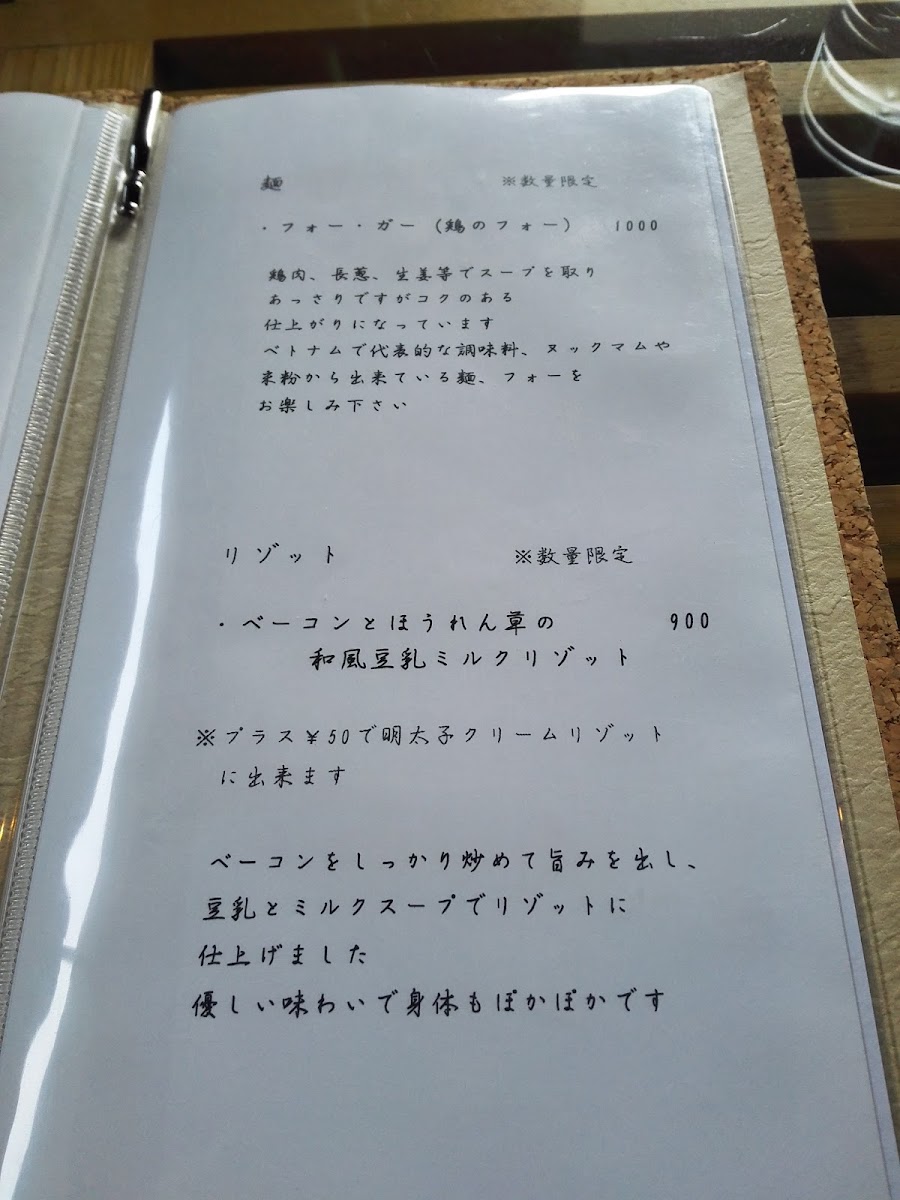 麺 ※数量限定
・フォー・ガー（鶏のフォー） 1000
鶏肉、長葱、生姜等でスープを取り
あっさりですがコクのある
仕上がりになっています
ベトナムで代表的な調味料、ヌックマムや
米粉から出来ている麺、フォーを
お楽しみ下さい
リゾット ※数量限定
・ベーコンとほうれん草の 900
和風豆乳ミルクリゾット
※プラス￥50で明太子クリームリゾット
に出来ます
ベーコンをしっかり炒めて旨みを出し、
豆乳とミルクスープでリゾットに
仕上げました
優しい味わいで身体もぽかぽかです